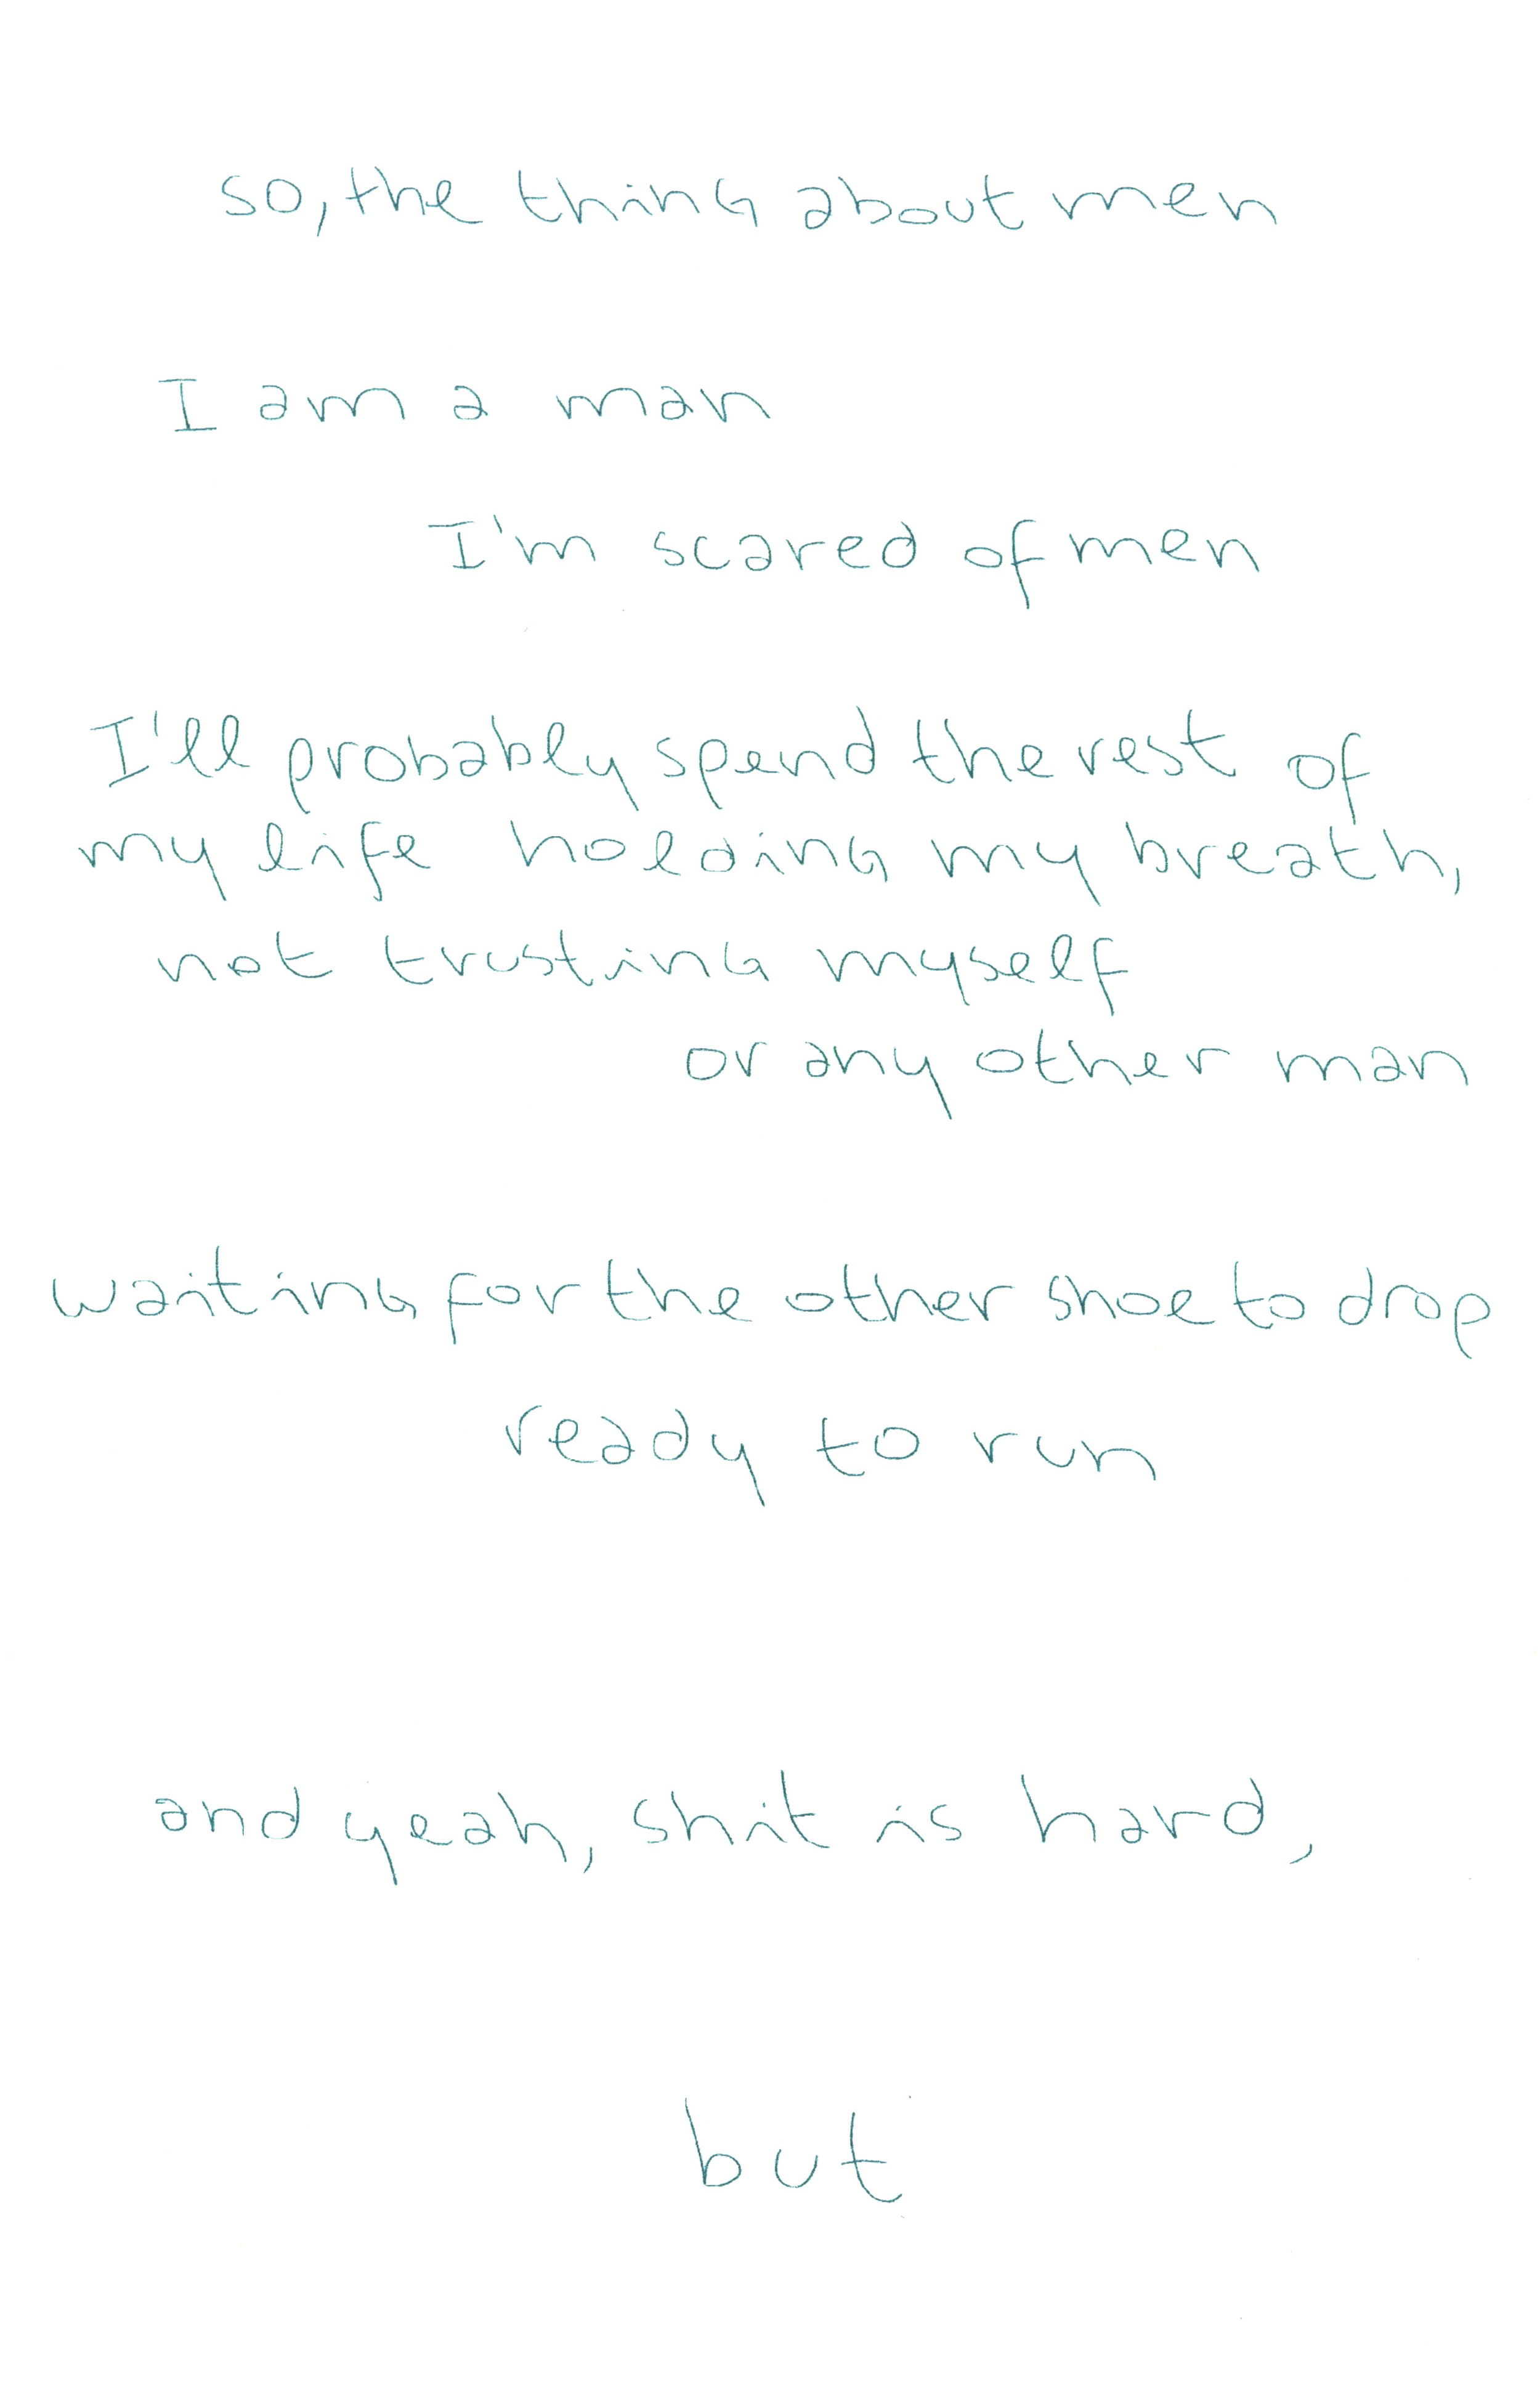 so, the thing about men
I am a man
I'm scared of men
I'll probably spend the rest of
my life holding my breath,
not trusting myself
or any other man
waiting for the other shoe to drop
ready to run
and yeah, shit is hard,
but